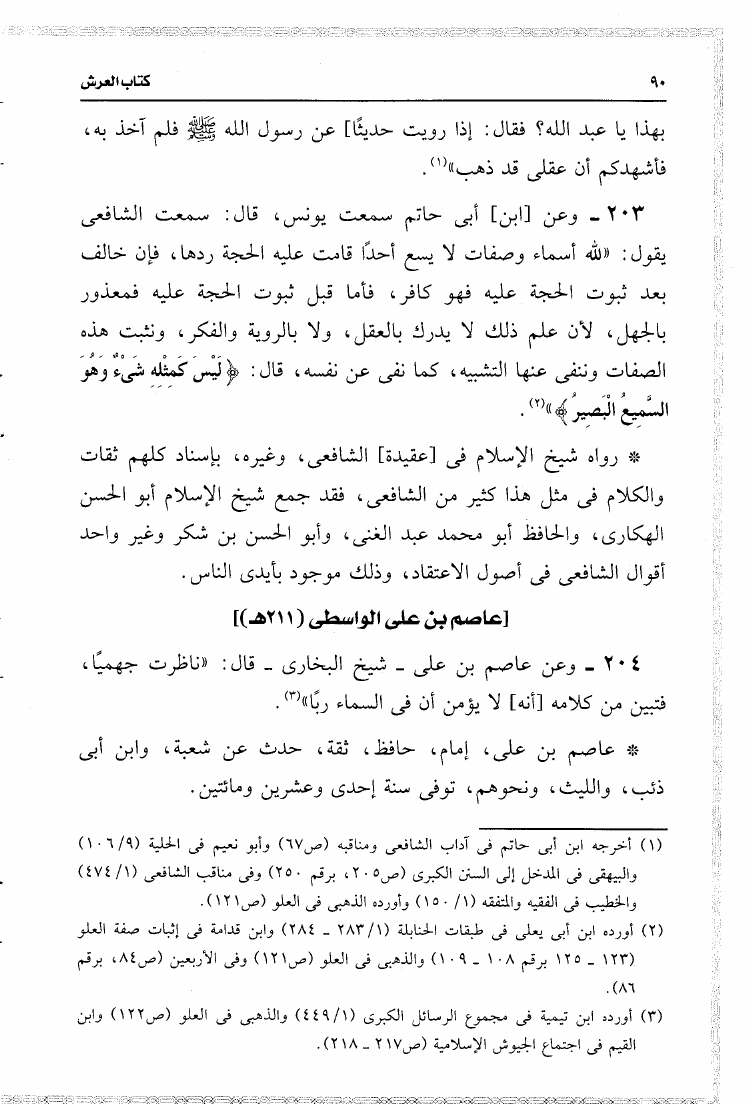 ٩٠ كتاب العرش
بهذا يا عبد الله؟ فقال: إذا رويت حديثًا] عن رسول الله ﷺ فلم آخذ به،
فأشهدكم أن عقلى قد ذهب»(١).
٢٠٣ ـ وعن [ابن] أبى حاتم سمعت يونس، قال: سمعت الشافعى
يقول: «لله أسماء وصفات لا يسع أحدًا قامت عليه الحجة ردها، فإن خالف
بعد ثبوت الحجة عليه فهو كافر، فأما قبل ثبوت الحجة عليه فمعذور
بالجهل، لأن علم ذلك لا يدرك بالعقل، ولا بالروية والفكر، ونثبت هذه
الصفات وننفى عنها التشبيه، كما نفى عن نفسه، قال: ﴿لَيْسَ كَمِثْلِهِ شَىْءٌ وَهُوَ
السَّمِيعُ الْبَصِيرُ﴾»(٢).
* رواه شيخ الإسلام فى [عقيدة] الشافعى، وغيره، بإسناد كلهم ثقات
والكلام فى مثل هذا كثير من الشافعى، فقد جمع شيخ الإسلام أبو الحسن
الهكارى، والحافظ أبو محمد عبد الغنى، وأبو الحسن بن شكر وغير واحد
أقوال الشافعى فى أصول الاعتقاد، وذلك موجود بأيدى الناس.
[عاصم بن على الواسطى (٢١١هـ)]
٢٠٤ ـ وعن عاصم بن على ـ شيخ البخارى ـ قال: «ناظرت جهميًا،
فتبين من كلامه [أنه] لا يؤمن أن فى السماء ربًا»(٣).
* عاصم بن على، إمام، حافظ، ثقة، حدث عن شعبة، وابن أبى
ذئب، والليث، ونحوهم، توفى سنة إحدى وعشرين ومائتين.
(١) أخرجه ابن أبى حاتم فى آداب الشافعى ومناقبه (ص٦٧) وأبو نعيم فى الحلية (١٠٦/٩)
والبيهقى فى المدخل إلى السنن الكبرى (ص٢٠٥، برقم ٢٥٠) وفى مناقب الشافعى (٤٧٤/١)
والخطيب فى الفقيه والمتفقه (١٥٠/١) وأورده الذهبى فى العلو (ص١٢١).
(٢) أورده ابن أبى يعلى فى طبقات الحنابلة (٢٨٣/١ ـ ٢٨٤) وابن قدامة فى إثبات صفة العلو
(١٢٣ ـ ١٢٥ برقم ١٠٨ ـ ١٠٩) والذهبى فى العلو (ص١٢١) وفى الأربعين (ص٨٤، برقم
٨٦).
(٣) أورده ابن تيمية فى مجموع الرسائل الكبرى (٤٤٩/١) والذهبى فى العلو (ص١٢٢) وابن
القيم فى اجتماع الجيوش الإسلامية (ص٢١٧ ـ ٢١٨).